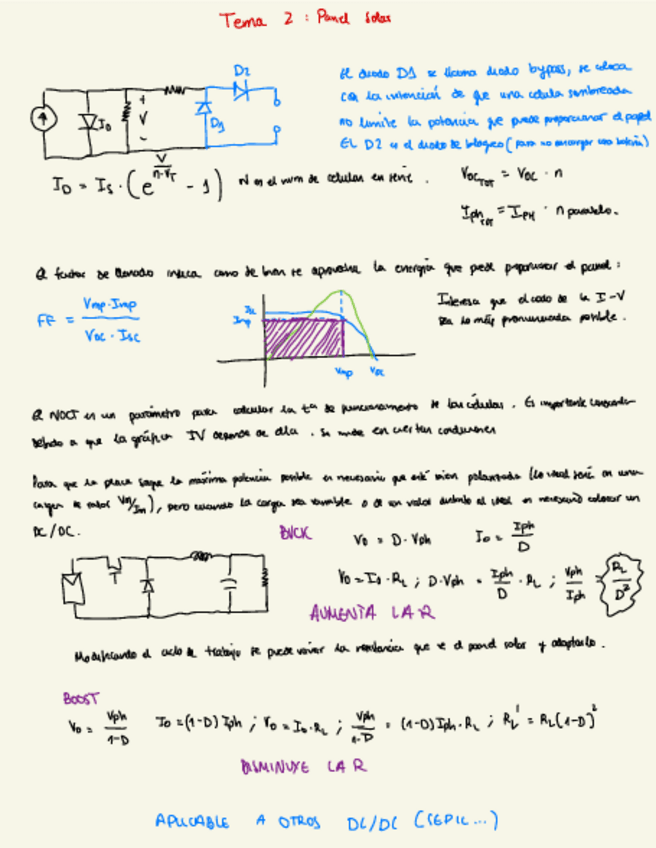 Tema 2 : Panel solar
D2
El diodo D1 se llama diodo bypass, se coloca
con la intención de que una celula sombreada
no limite la potencia que puede proporcionar el papel
EL D2 es el diodo de bloqueo (para no encargar una batería)
+
V
-
ID
D1
ID = IS · (e^(V/(n·VT)) - 1) N es el num de celulas en serie .
VOC_TOT = VOC · n
Iph_TOT = IPH · n paralelo.
El factor de llenado indica como de bien se aprovecha la energía que puede proporcionar el panel :
FF = (Vmp·Imp)/(VOC · ISC)
Isc
Imp
Vmp
Voc
Interesa que el codo de la I-V
sea lo más pronunciada posible .
El NOCT es un parámetro para calcular la tª de funcionamiento de las células . Es importante conocerla
debido a que la gráfica IV depende de ella . Se mide en ciertas condiciones
Para que la placa saque la máxima potencia posible es necesario que esté bien polarizada (lo ideal será en una
carga de valor Vm/Im), pero cuando la carga sea variable o de un valor distinto al ideal es necesario colocar un
DC/DC.
BUCK
Vo = D · Vph Io = Iph/D
T
Vo = Io · RL ; D·Vph = Iph/D · RL ; Vph/Iph = RL/D²
AUMENTA LA R
Modificando el ciclo de trabajo se puede variar la resistencia que ve el panel solar y adaptarlo .
BOOST
Vo = Vph/(1-D) Io = (1-D) Iph ; Vo = Io·RL ; Vph/(1-D) = (1-D) Iph · RL ; RL' = RL(1-D)²
DISMINUYE LA R
APLICABLE A OTROS DC/DC (SEPIC...)